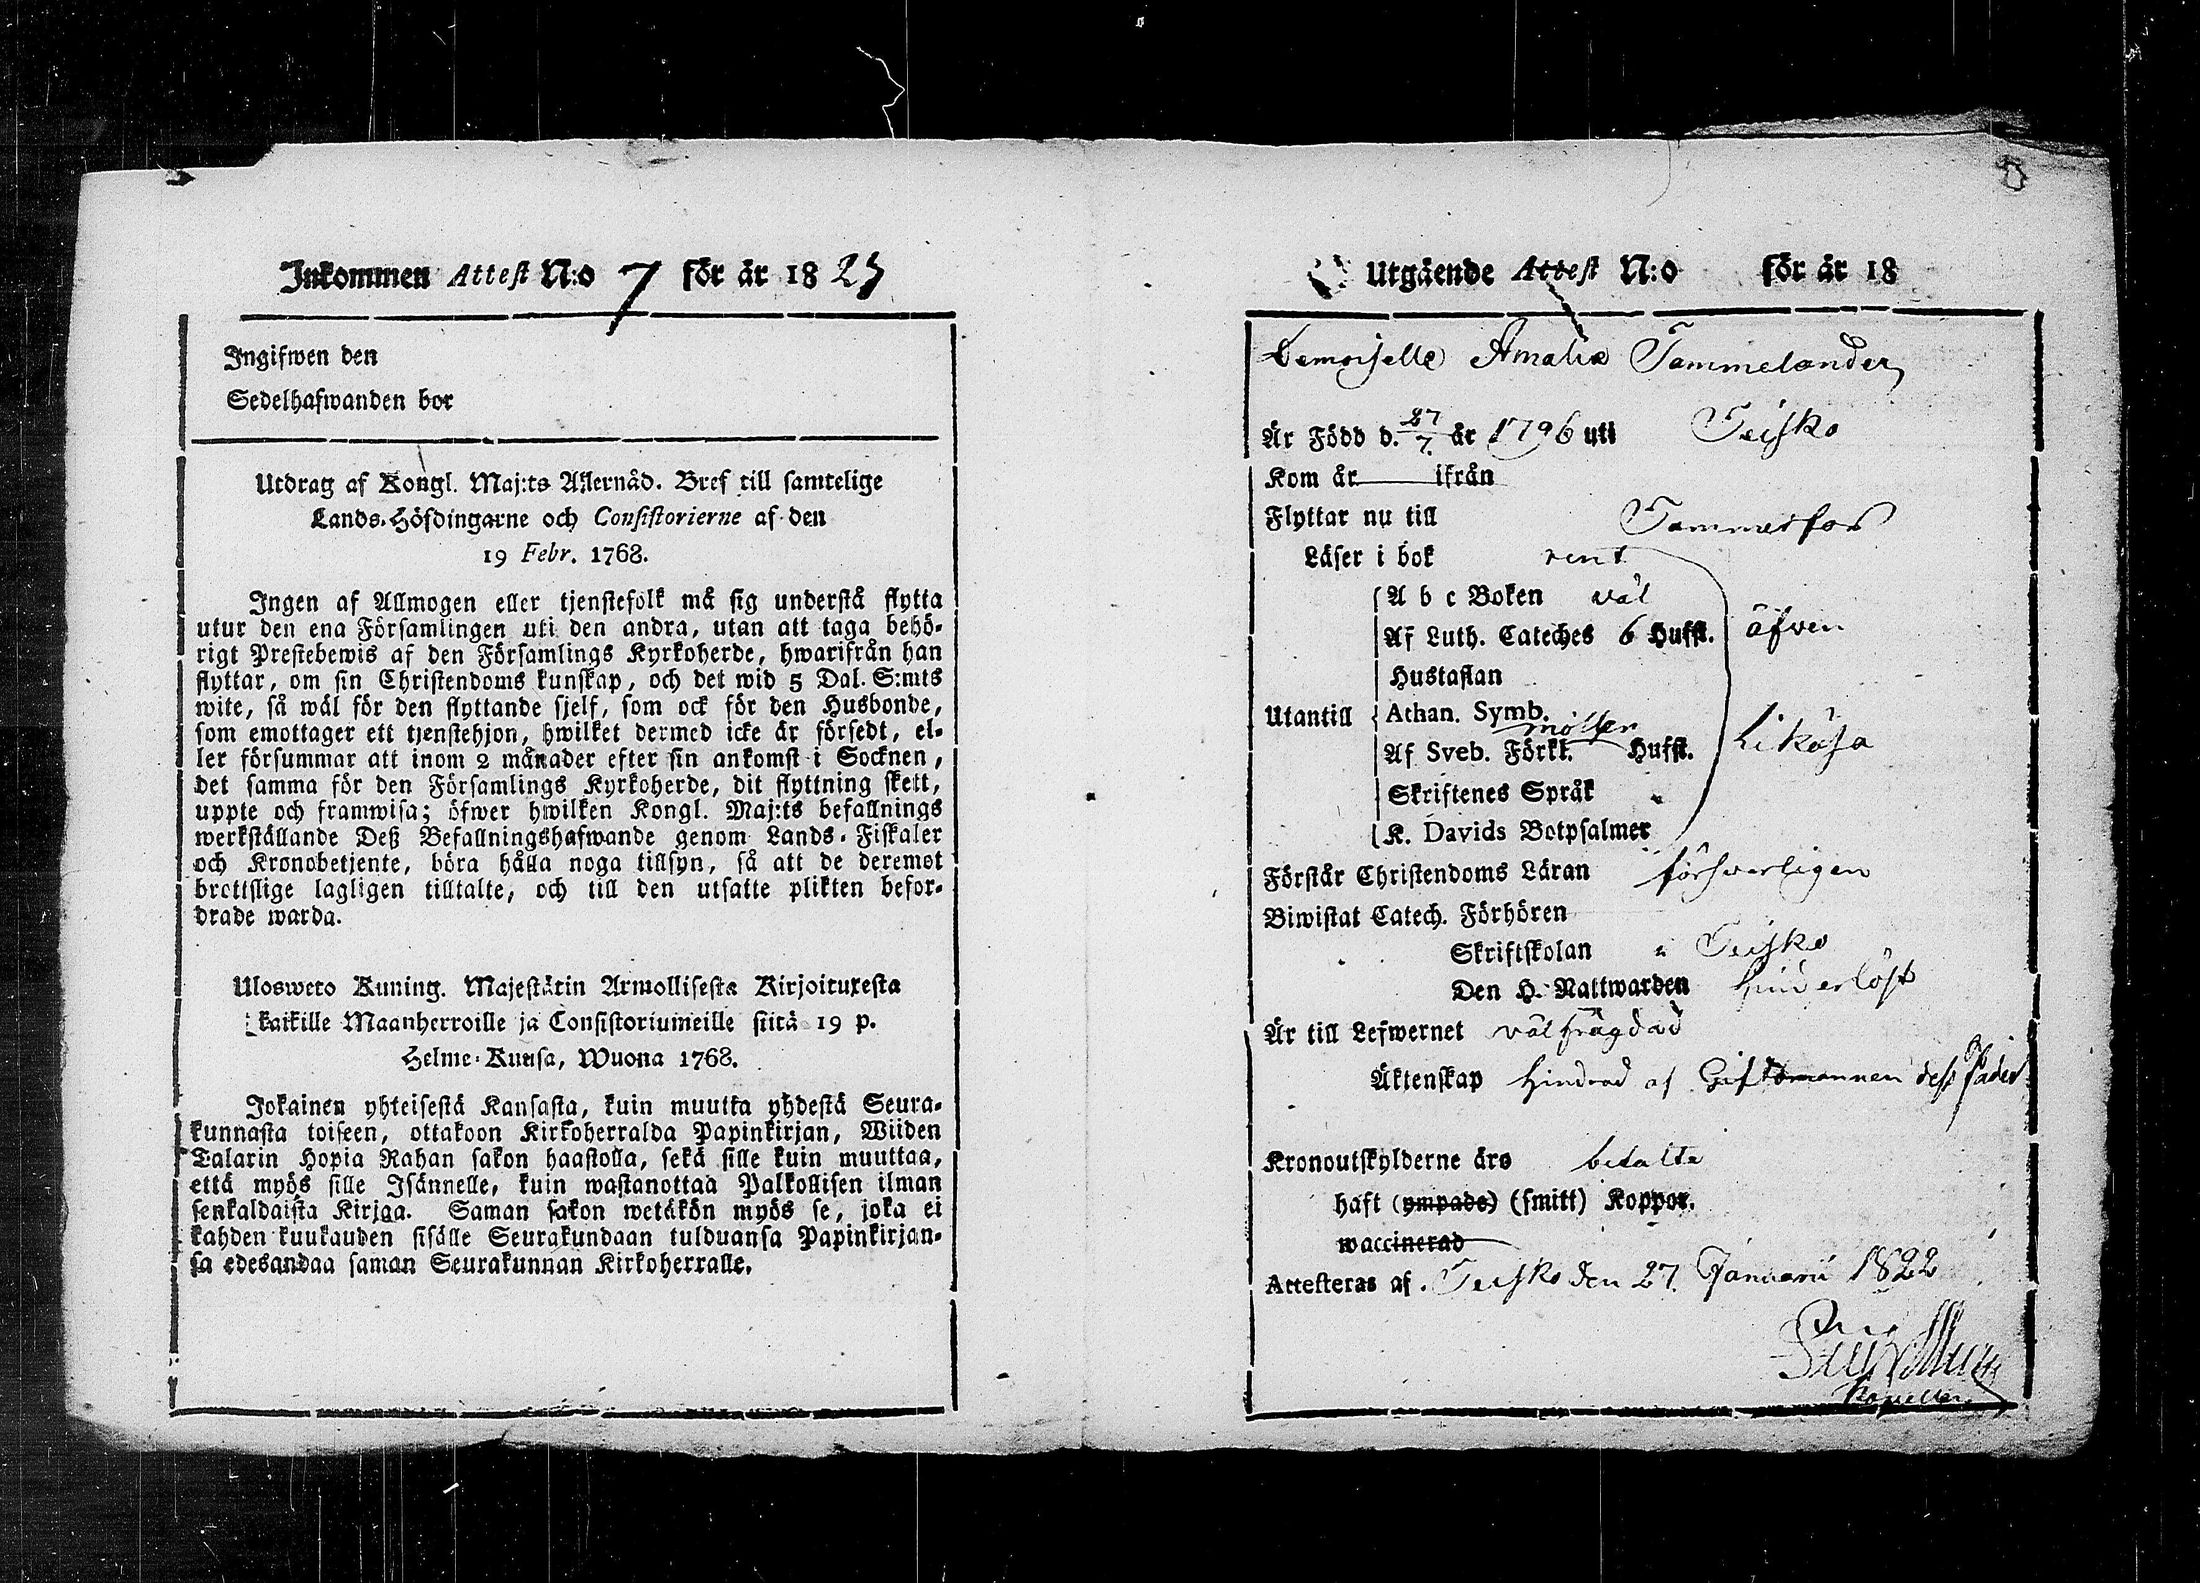 Inkommen Attest N:o 7 för år 1823
Ingifwen den
Sedelhafwanden bor
Utdrag af Kongl. Maj:ts Allernåd. Bref till samtelige
Lands-Höfdingarne och Consistorierne af den
19 Febr. 1768.
Ingen af Allmogen eller tjenstefolk må sig understå flytta
utur den ena Församlingen uti den andra, utan att taga behö-
rigt Prestebewis af den Församlings Kyrkoherde, hwarifrån han
flyttar, om sin Christendoms kunskap, och det wid 5 Dal. S:mts
wite, så wäl för den flyttande sjelf, som ock för den Husbonde,
som emottager ett tjenstehjon, hwilket dermed icke är försedt, el-
ler försummar att inom 2 månader efter sin ankomst i Socknen,
det samma för den Församlings Kyrkoherde, dit flyttning skett,
uppte och framwisa; öfwer hwilken Kongl. Maj:ts befallnings
werkställande Deß Befallningshafwande genom Lands-Fiskaler
och Kronobetjente, böra hålla noga tillsyn, så att de deremot
brottslige lagligen tilltalte, och till den utsatte plikten befor-
drade warda.
Ulosweto Kuning. Majestätin Armollisesta Kirjoituxesta
kaikille Maanherroille ja Consistoriumeille siitä 19 p.
Helme-Kuusa, Wuona 1768.
Jokainen yhteisestä Kansasta, kuin muutta yhdestä Seura-
kunnasta toiseen, ottakoon Kirkoherralda Papinkirjan, Wiiden
Talarin Hopia Rahan sakon haastolla, sekä sille kuin muuttaa,
että myös sille Isännelle, kuin wastanottaa Palkollisen ilman
senkaldaista Kirjaa. Saman sakon wetäkön myös se, joka ei
kahden kuukauden sisälle Seurakundaan tulduansa Papinkirjan-
sa edesandaa saman Seurakunnan Kirkoherralle.
Utgående Attest N:o för år 18
Demoiselle Amalia Tammelander
Är Född d. 27/7. år 1796 uti Teisko
Kom år ifrån
Flyttar nu till Tammerfors
Läser i bok rent
A b c Boken väl
Af Luth. Cateches 6 Hufst. äfven
Hustaflan
Utantill Athan. Symb.
Af Sveb. Förkl. Hufst. likaså
Skriftenes Språk
K. Davids Botpsalmer
Förstår Christendoms Läran försvarligen
Biwistat Catech. Förhören
Skriftskolan i Teisko
Den H. Nattwarden hinderlöst
Är till Lefwernet välfrägdad
Äktenskap hindrad af Giftomannen dess Fader
Kronoutskylderne äro betalte
haft (ympade) (smitt) Koppor.
waccinerad
Attesteras af. Teisko den 27. Januarii 1822
Kapellan.